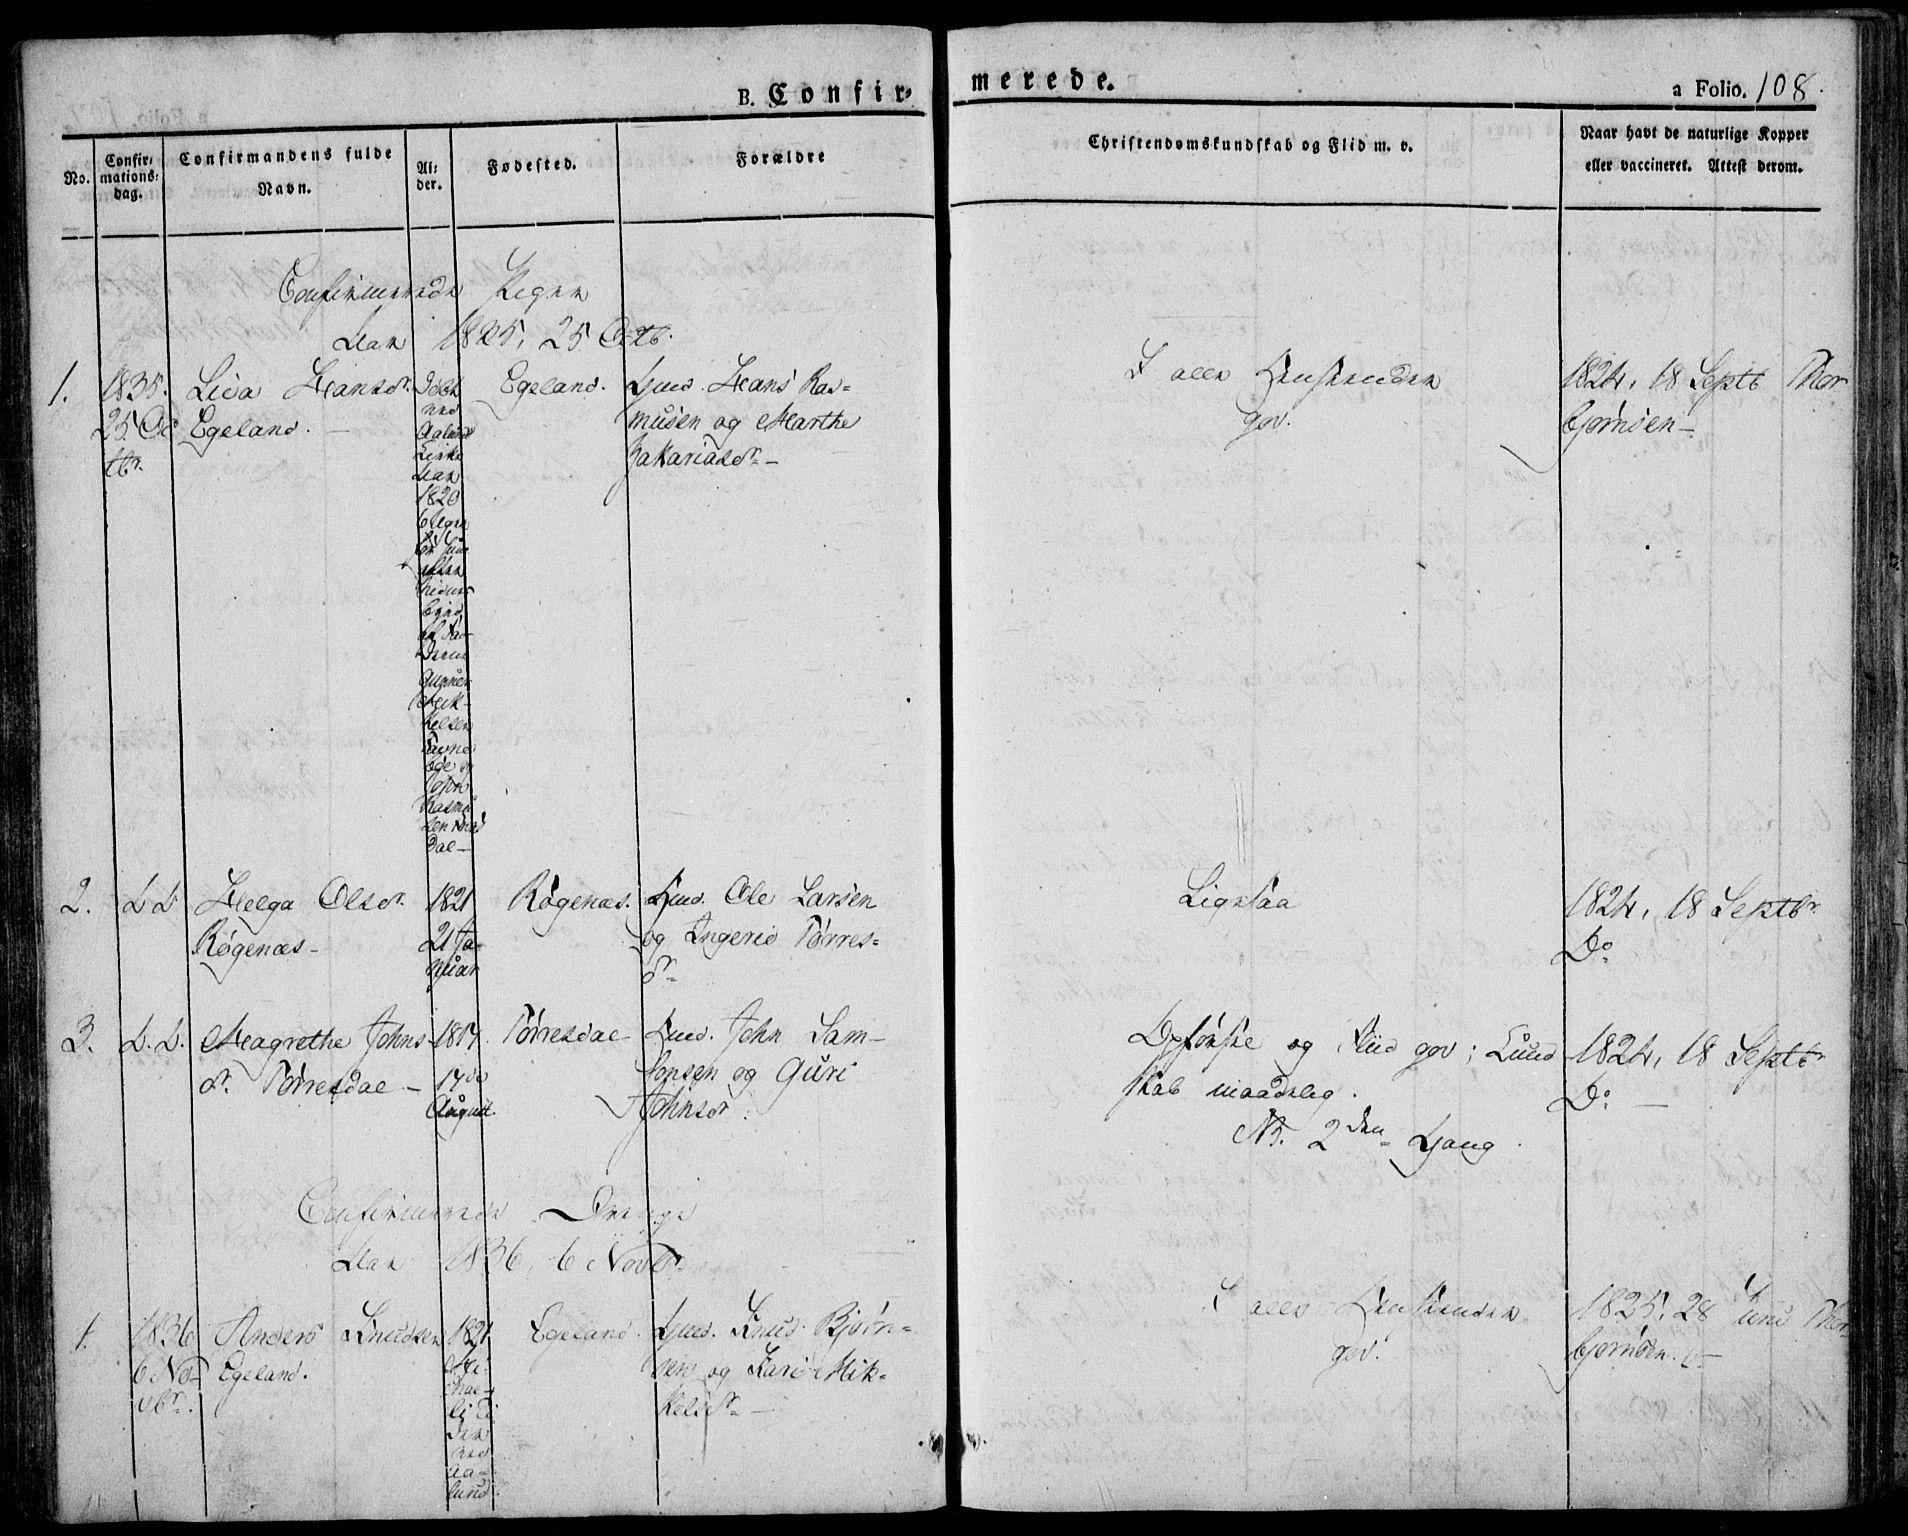 B. Confir-
merede.
a Folio. 108.
No.
Confir-
mations-
dag.
Confirmandens fulde
Navn.
Al-
der.
Fødested.
Forældre
Christendomskundskab og Flid m. v.
Naar havt de naturlige Kopper
eller vaccineret. Attest derom.
Confirmerede Piger
Aar 1835, 25 Octb.
1.
1835.
25 Oc
tbr.
Lisa Hansdr.
Egeland.
Aar
1820
af Fa-
Gunner
Dal
Egeland.
Gmd. Hans Ras=
musen og Marthe
Zakariasdr
I alle Henseender
gov.
1824, 18 Septb Thor
bjørnsen
2.
D. D.
Helga Olsdr.
Røgenæs
1821
21 Ja-
nuar
Røgenæs.
Gmd. Ole Larsen
og Ingerid Tørres=
dr
Ligesaa
1824, 18 Septbr
Do
3.
D. D.
Magrethe Johns
dr. Tørresdal
17de
August.
Tørresdal
Gmd. John Sam-
sonsen og Guri
Johnsdr.
Opførsel og Fliid gov; Kund
skab maadelig.
NB. 2den Gang.
1824, 18 Septbr
Do
Confirmerede Drenge
Aar 1836, 6 Novbr
1.
1836
6 No-
vbr.
Anders Knudsen
Egeland.
1821
Mi-
chae-
li Ti
der
ved
Aa-
lund.
Egeland.
Gmd. Knud Bjørn=
sen og Kari Mik=
kelsdr
I alle Henseender
gov.
1825, 28 Juni Thor
bjørnsen.